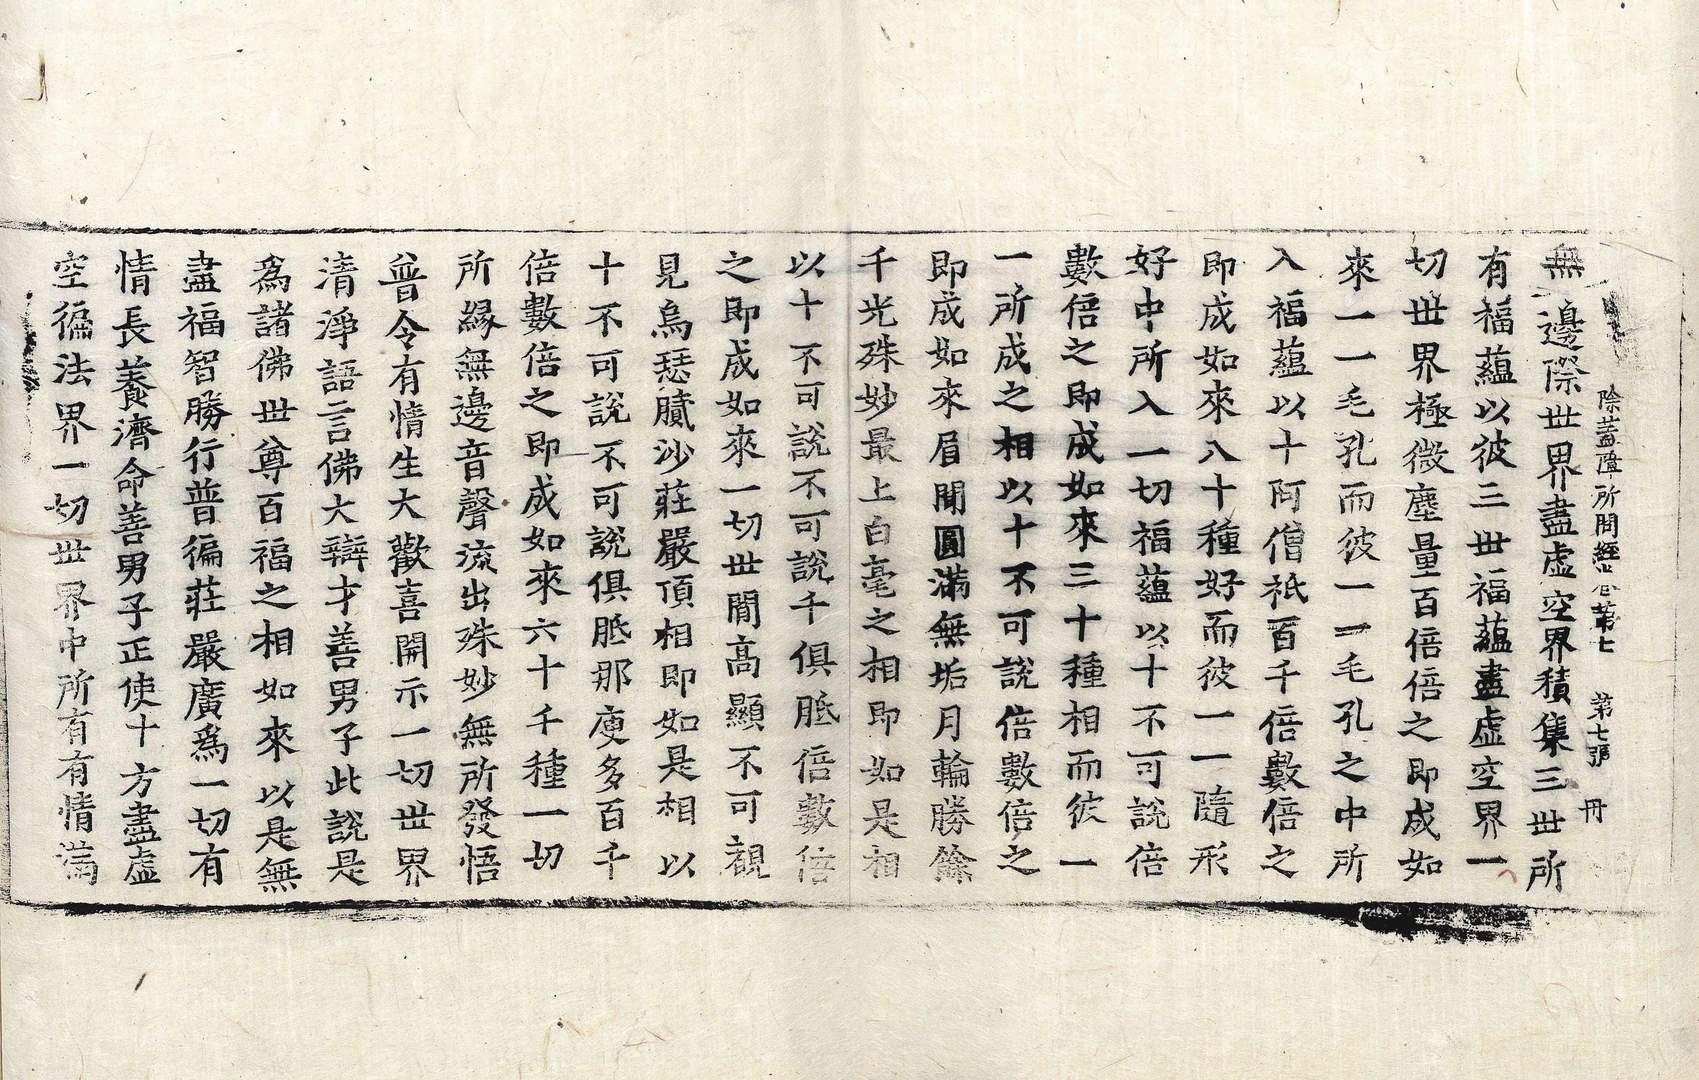 除蓋障所問經卷第七 第七張 冊
無邊際世界盡虛空界積集三世所
有福蘊以彼三世福蘊盡虛空界一
切世界極微塵量百倍倍之即成如
來一一毛孔而彼一一毛孔之中所
入福蘊以十阿僧祇百千倍數倍之
即成如來八十種好而彼一一隨形
好中所入一切福蘊以十不可說倍
數倍之即成如來三十種相而彼一
一所成之相以十不可說倍數倍之
即成如來眉間圓滿無垢月輪勝餘
千光殊妙最上白毫之相即如是相
以十不可說不可說千俱胝倍數倍
之即成如來一切世間高顯不可覩
見烏瑟膩沙莊嚴頂相即如是相以
十不可說不可說俱胝那庾多百千
倍數倍之即成如來六十千種一切
所緣無邊音聲流出殊妙無所發悟
普令有情生大歡喜開示一切世界
清淨語言佛大辯才善男子此說是
爲諸佛世尊百福之相如來以是無
盡福智勝行普徧莊嚴廣爲一切有
情長養濟命善男子正使十方盡虛
空徧法界一切世界中所有有情滿